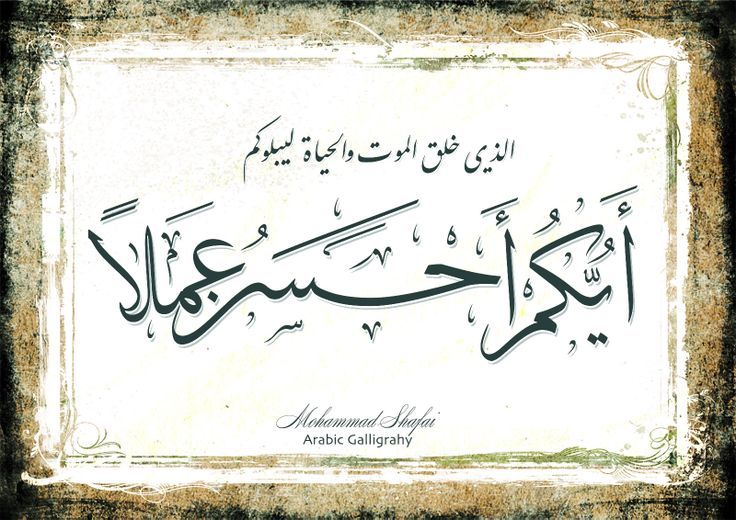 الذي خلق الموت والحياة ليبلوكم
أَيُّكُمْ أَحْسَنُ عَمَلاً
Mohammad Shafai
Arabic Galligrahy